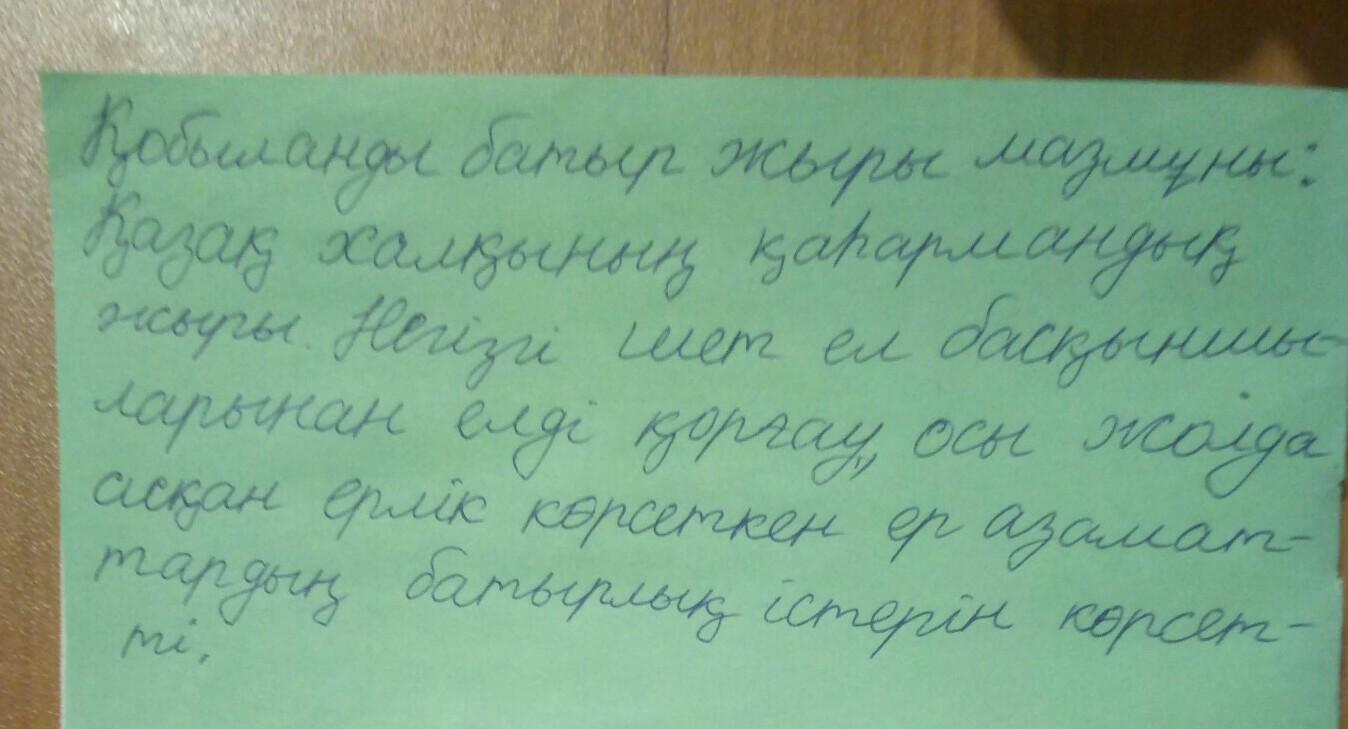 Қобыланды батыр жыры мазмұны:
Қазақ халқының қаһармандық
жыры. Негізгі шет ел басқыншы-
ларынан елді қорғау,, осы жолда
асқан ерлік көрсеткен ер азамат-
тардың батырлық істерін көрсет-
ті.